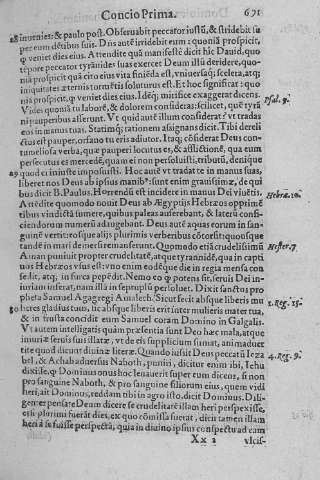 Concio Prima. 691
inuenies: & paulo pòst. Obseruabit peccator iustũ, & stridebit su
per eum dẽtibus suis. Dñs autẽ irridebit eum: quoniã prospicit,
q̃ veniet dies eius. Attendite quã manifestè dicit hic Dauid, quo
tẽpore peccator tyrãnidẽ suas exercet Deum illũ deridere, quo-
niã prospicit quã cito eius vita finiẽda est, vniuersaq́; scelera, atq;
iniquitates æternis tormẽtis soluturus est. Et hoc significat: quo
niã prospicit, q̃ veniet dies eius. Idẽq́; mirificè exaggerat dicens.
Vides quoniã tu laborẽ, & dolorem consideras: scilicet, quẽ tyrã
ni pauperibus afferunt. Vt quid autẽ illum consideras? vt tradas
eos in manus tuas. Statimq́; rationem assignans dicit. Tibi dereli
ctus est pauper, orfano tu eris adiutor. Itaq; cõsiderat Deus con-
tumeliosa verba, quæ pauperi locutus es, & afflictionẽ, qua eum
persecutus es mercedẽ, quam ei non persoluisti, tributũ, denique
quod ei iniustè imposuisti. Hoc autẽ vt tradat te in manus suas,
liberet nos Deus ab ipsius manib⁹: sunt enim grauissimæ, de qui
bus dicit B. Paulus. Horrendũ est incidere in manus Dei viuẽtis.
Attẽdite quomodo nouit Deus ab Ægyptijs Hebræos opprimẽ
tibus vindictã sumere, quibus paleas auferebant, & laterũ confi-
ciendorum numerũ adaugebant. Deus autẽ aquas eorum in san-
guinẽ vertit: reosque alijs plurimis verberibus cõcessit: quousque
tandẽ in mari demersi remanserunt. Quomodo etiã crudelissimũ
Aman puniuit propter crudelitatẽ, atque tyrannidẽ, qua in capti
uos Hebræos vsus est: vno enim eodẽque die in regia mensa con
sedit, atq; in furca pepẽdit. Nemo eo q̃ potens sit, seruis Dei in-
iuriam inferat, nam illã in septuplũ persoluet. Dixit sanctus pro
pheta Samuel Agag regi Amalech. Sicut fecit absque liberis mu
lieres gladius tuus, ita absque liberis erit inter mulieres mater tua,
& in frusta concidit eum Samuel coram Domino in Galgalis.
Vt autem intelligatis quàm præsentia sunt Deo hæc mala, atque
iniuriæ seruis suis illatæ, vt de eis supplicium sumat, animaduer
tite quod dicunt diuinæ literæ. Quando iussit Deus peccati Ieza
bel, & Achab aduersus Naboth, puniri, dicitur enim ibi, Iehu
dixisse, q̃ Dominus onus hoc leuauerit super eum dicens, si non
pro sanguine Naboth, & pro sanguine filiorum eius, quem vidi
heri, ait Dominus, reddam tibi in agro isto, dicit Dominus. Dili-
genter pensate Deum dicere se crudelitatẽ illam heri perspexisse,
etsi plurimi fuerãt dies, ex quo cõmissa fuerat, dicit tamen illam
heri à se fuisse perspectã, quia in diuino ipsius conspectu ad eam
Xx 2 vlcis-
Psal. 9.
Hebræ. 10.
Hester. 7
1. Reg. 15.
4. Reg. 9.